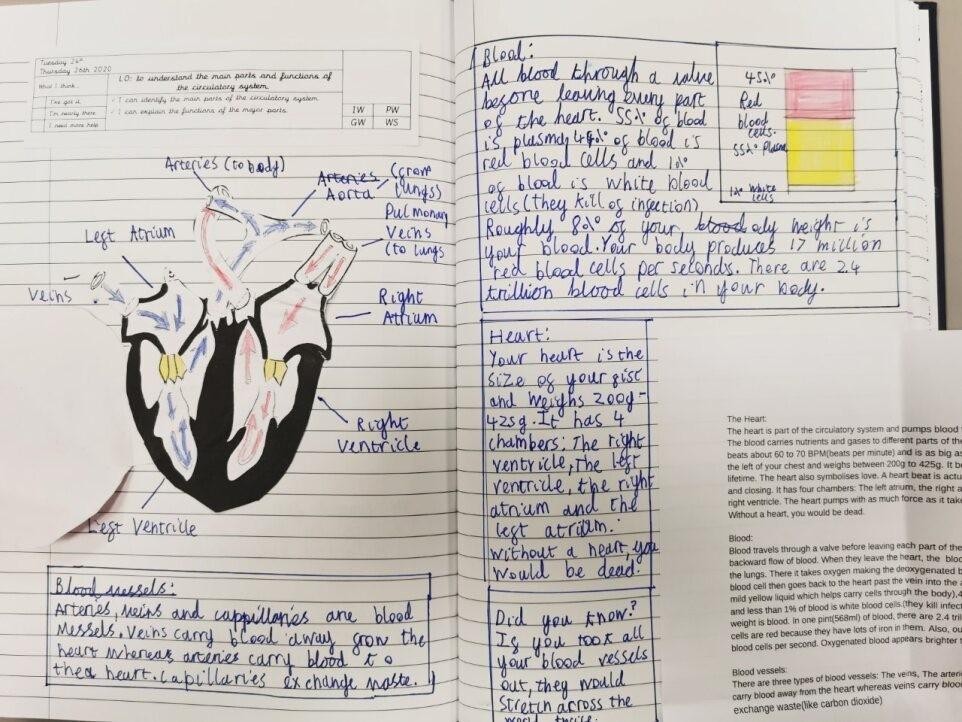 Tuesday 24th
Thursday 26th 2020
LO: to understand the main parts and functions of
the circulatory system.
What I think...
I've got it.
I'm nearly there
I need more help
✓ I can identify the main parts of the circulatory system.
✓ I can explain the functions of the major parts.
IW PW
GW WS
Arteries (to body)
Arteries (from
Aorta lungs)
Left Atrium
Pulmonary
Veins
(to lungs
Veins
Right
Atrium
Right
Ventricle
Left Ventricle
Blood vessels:
Arteries, veins and cappillaries are blood
vessels. Veins carry blood away from the
heart whereas arteries carry blood to
the heart. Capillaries exchange waste.
Blood:
All blood through a valve
before leaving every part
of the heart. 55% of blood
is plasma, 44% of blood is
red blood cells and 1%
of blood is white blood
cells (they kill of infection)
Roughly 8% of your blood ody weight is
your blood. Your body produces 17 million
red blood cells per seconds. There are 2.4
trillion blood cells in your body.
45%
Red
blood
cells.
55% Plasma
1% White
cells
Heart:
Your heart is the
size of your fist
and weighs 200g-
425g. It has 4
chambers: The right
ventricle, The left
ventricle, the right
atrium and the
left atrium.
Without a heart, you
would be dead.
Did you know?
If you took all
your blood vessels
out, they would
stretch across the
world twice.
The Heart:
The heart is part of the circulatory system and pumps blood
The blood carries nutrients and gases to different parts of the
beats about 60 to 70 BPM(beats per minute) and is as big as
the left of your chest and weighs between 200g to 425g. It
lifetime. The heart also symbolises love. A heart beat is
and closing. It has four chambers: The left atrium, the right
right ventricle. The heart pumps with as much force as it
Without a heart, you would be dead.
Blood:
Blood travels through a valve before leaving each part of the
backward flow of blood. When they leave the heart, the
the lungs. There it takes oxygen making the deoxygenated
blood cell then goes back to the heart past the vein into the
mild yellow liquid which helps carry cells through the body),
and less than 1% of blood is white blood cells.(they kill
weight is blood. In one pint(568ml) of blood, there are 2.4
cells are red because they have lots of iron in them. Also,
blood cells per second. Oxygenated blood appears brighter
Blood vessels:
There are three types of blood vessels: The veins, The
carry blood away from the heart whereas veins carry
exchange waste(like carbon dioxide)